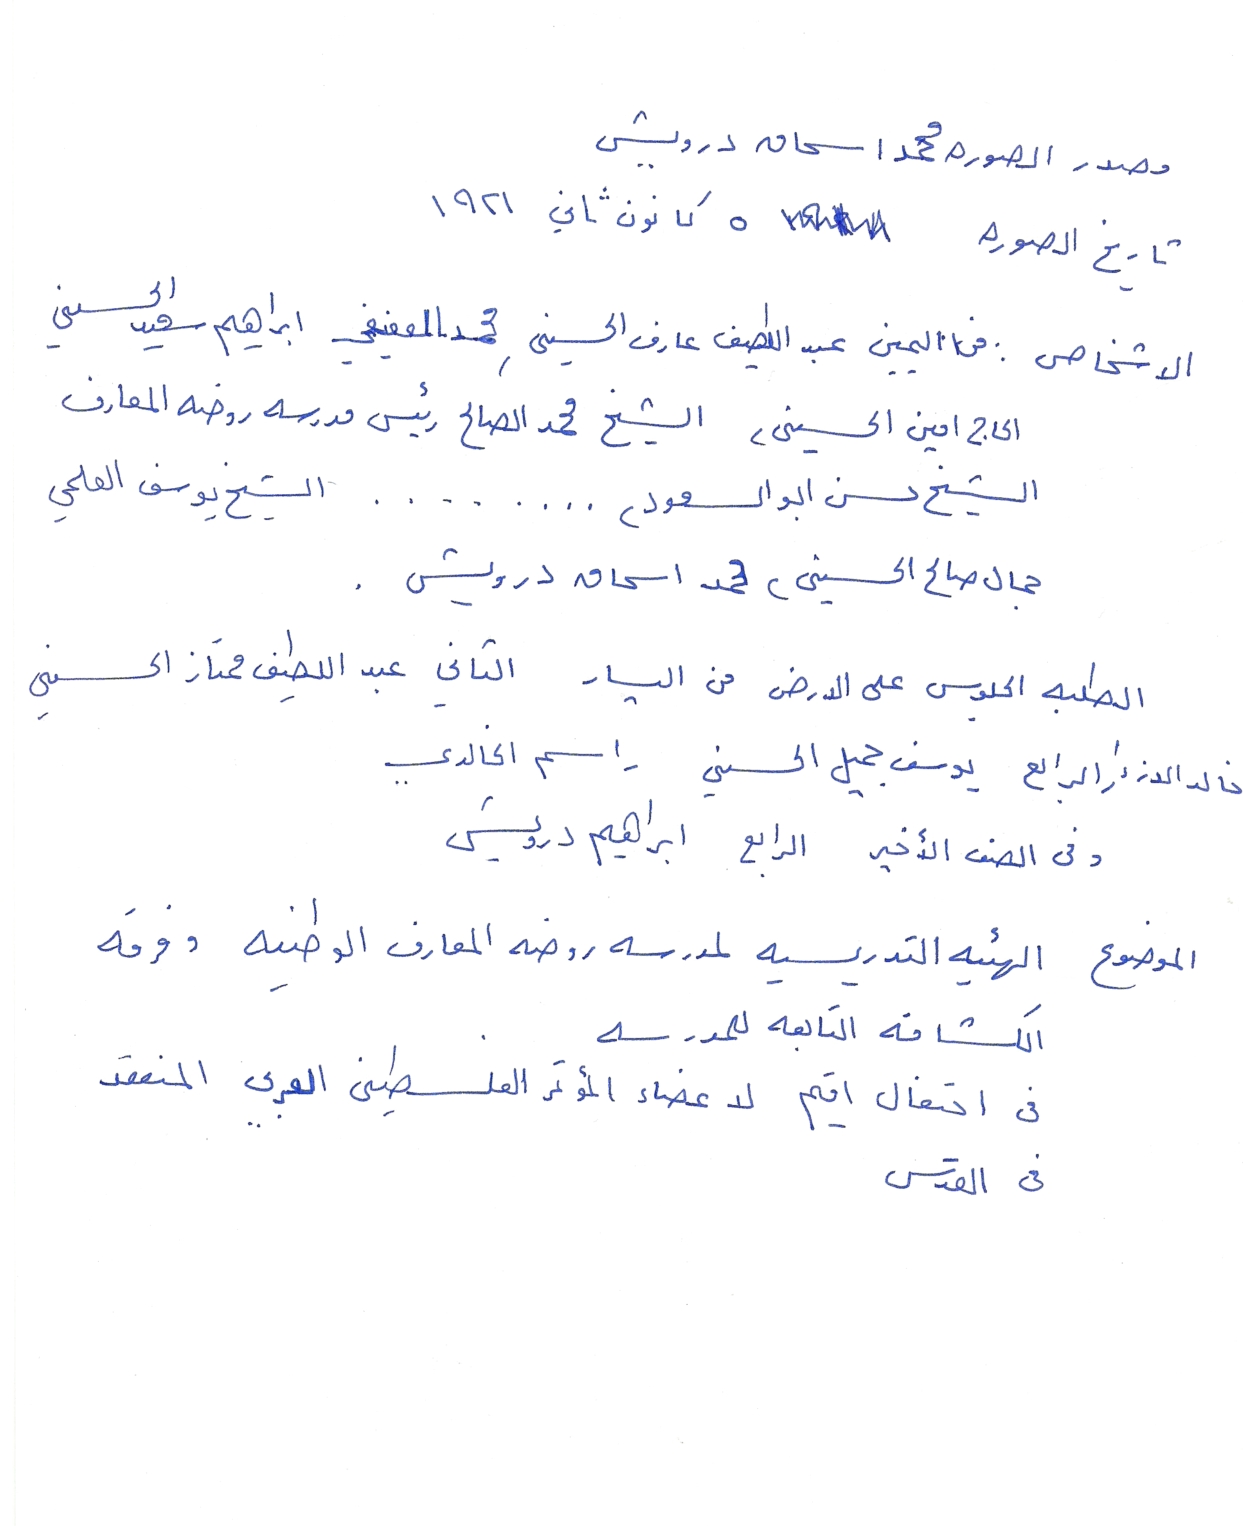 مصدر الصوره محمد اسحاق درويش
تاريخ الصوره ٥ كانون ثاني ١٩٢١
الاشخاص : من اليمين عبد اللطيف عارف الحسيني, محمد العفيفي ابراهيم سعيد الحسيني
الحاج امين الحسيني, الشيخ محمد الصالح رئيس مدرسه روضه المعارف
الشيخ حسن ابو السعود, .......... الشيخ يوسف العلمي
جمال صالح الحسيني, محمد اسحاق درويش .
الطلبه الجلوس على الارض من اليسار الثاني عبد اللطيف ممتاز الحسيني
خالد الدزدار الرابع يوسف جميل الحسيني راسم الخالدي
وفى الصف الأخير الرابع ابراهيم درويش
الموضوع الهئيه التدريسيه لمدرسه روضه المعارف الوطنيه وفرقه
الكشافه التابعه للمدرسه
فى احتفال اقيم لاعضاء المؤتمر الفلسطيني العربي المنعقد
فى القدس